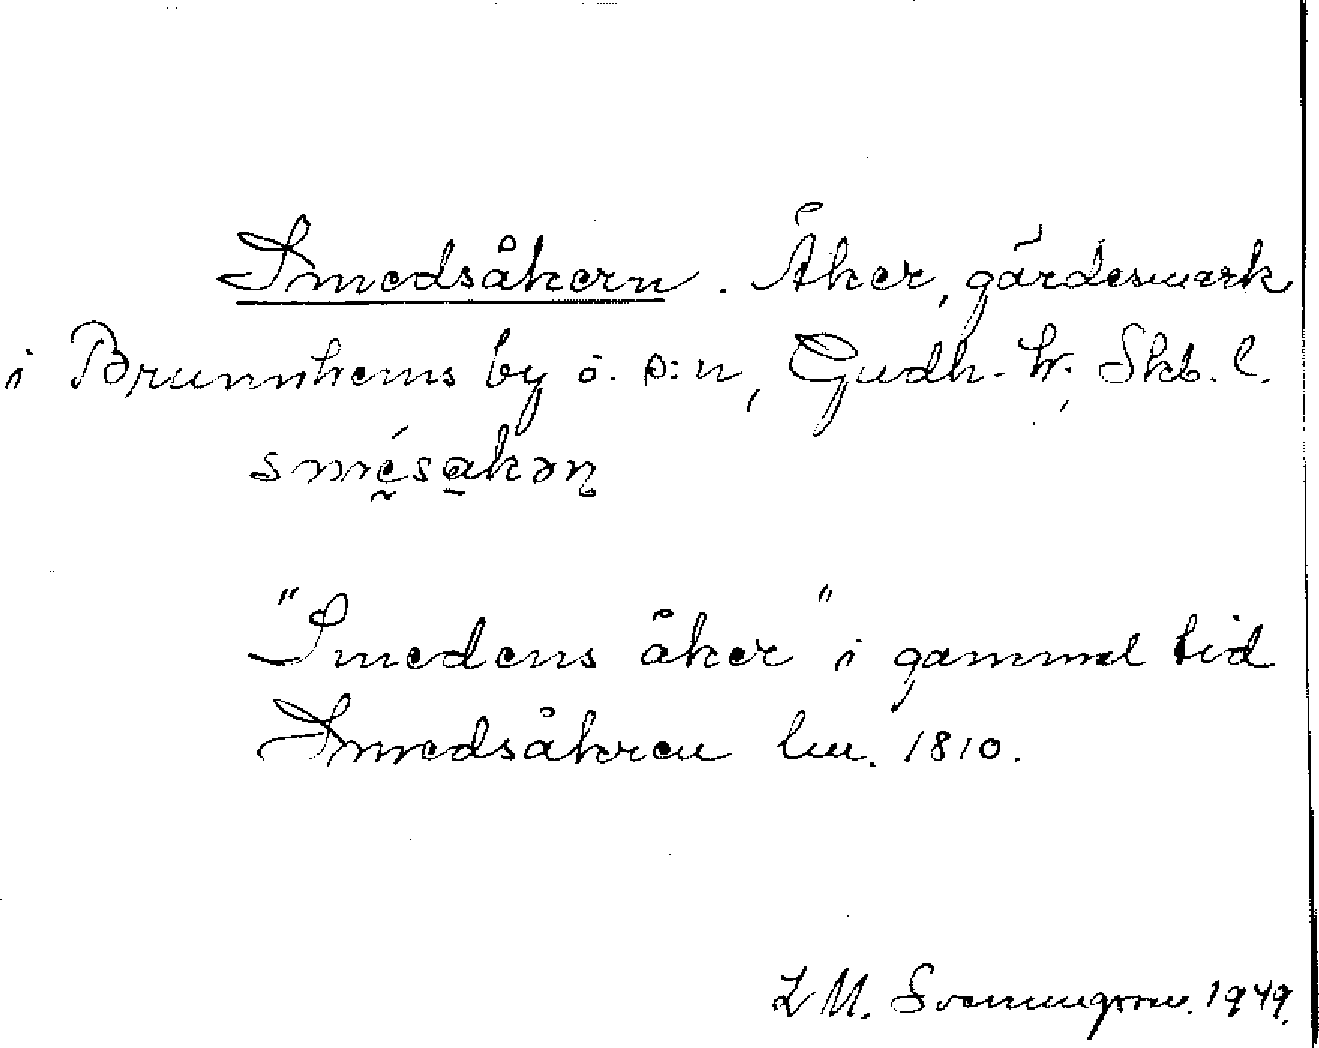 Smedsåkern. Åker, gärdesmark
i Brunnhems by o. s:n, Gudh. h., Skb. l.
smésakən

"Smedens åker" i gammal tid
Smedsåkren lm. 1810.

L M. Svenungsson. 1949.